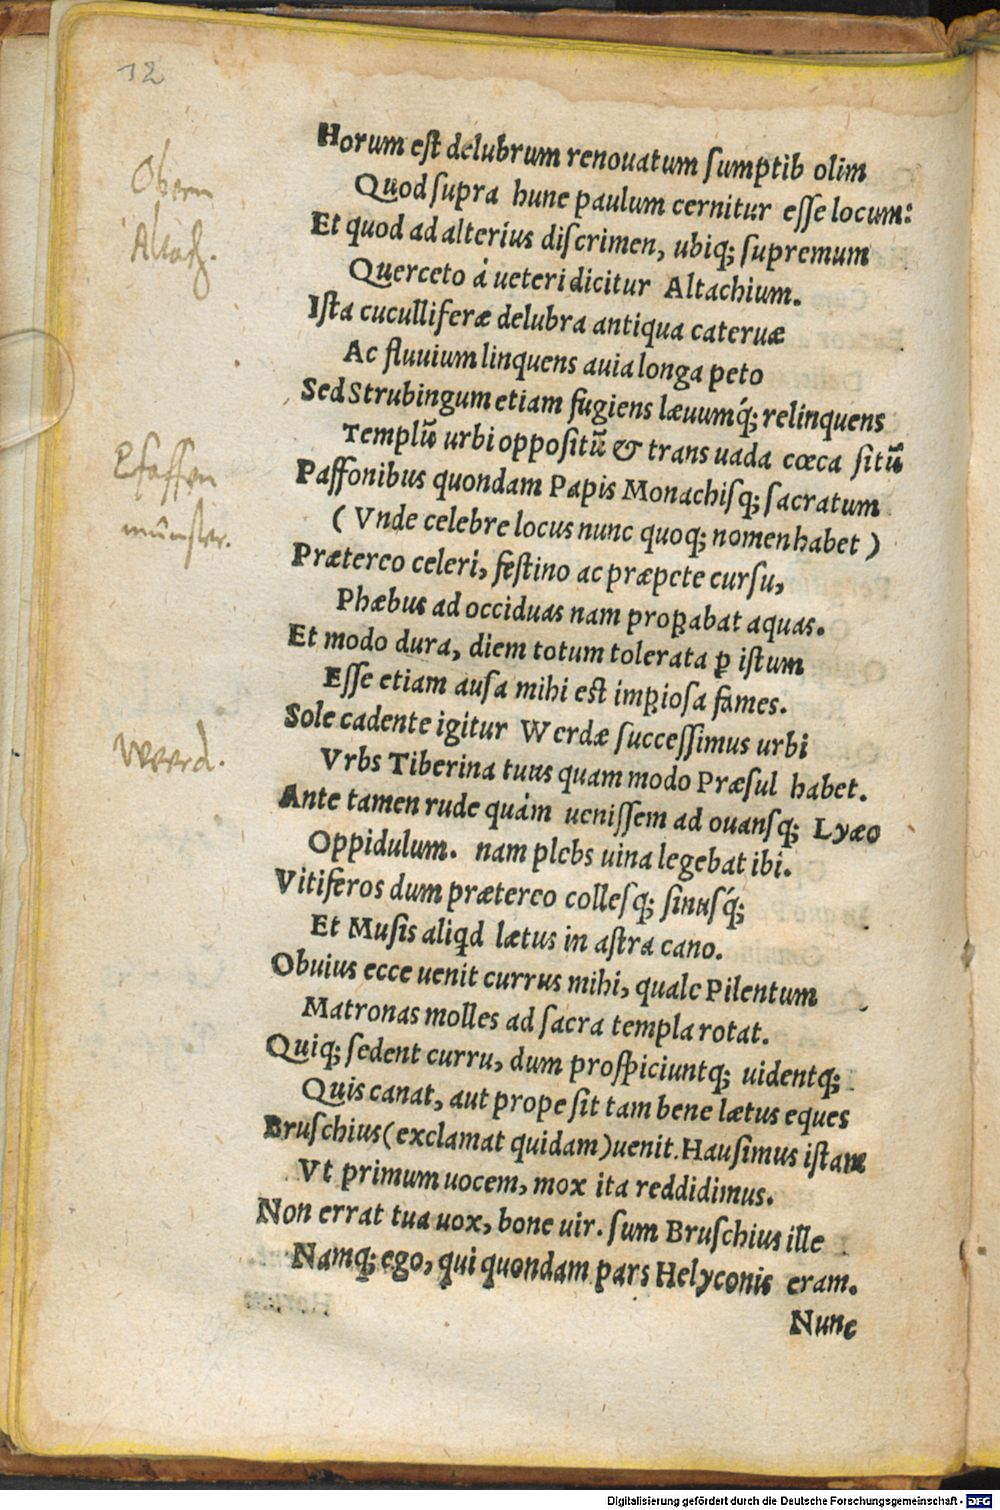 12
Horum est delubrum renouatum sumptib olim
Quod supra hunc paulum cernitur esse locum:
Obern
Altach.
Et quod ad alterius discrimen, ubiq; supremum
Querceto á ueteri dicitur Altachium.
Ista cuculliferæ delubra antiqua cateruæ
Ac fluuium linquens auia longa peto
Sed Strubingum etiam fugiens læuumq́; relinquens
Templũ urbi oppositũ & trans uada cœca sitũ
Pfaffen
münster.
Paffonibus quondam Papis Monachisq; sacratum
( Vnde celebre locus nunc quoq; nomen habet )
Prætereo celeri, festino ac præpete cursu,
Phæbus ad occiduas nam prop̱abat aquas.
Et modo dura, diem totum tolerata p̱ istum
Esse etiam ausa mihi est imp̱iosa fames.
Werd.
Sole cadente igitur Werdæ successimus urbi
Vrbs Tiberina tuus quam modo Præsul habet.
Ante tamen rude quám uenissem ad ouansq; Lyæo
Oppidulum. nam plebs uina legebat ibi.
Vitiferos dum prætereo collesq; sinusq́;
Et Musis aliqd lætus in astra cano.
Obuius ecce uenit currus mihi, quale Pilentum
Matronas molles ad sacra templa rotat.
Quiq; sedent curru, dum prospiciuntq; uidentq;
Quis canat, aut prope sit tam bene lætus eques
Bruschius (exclamat quidam) uenit. Hausimus istam
Vt primum uocem, mox ita reddidimus.
Non errat tua uox, bone uir. sum Bruschius ille
Namq; ego, qui quondam pars Helyconis eram.
Nunc
Digitalisierung gefördert durch die Deutsche Forschungsgemeinschaft - DFG